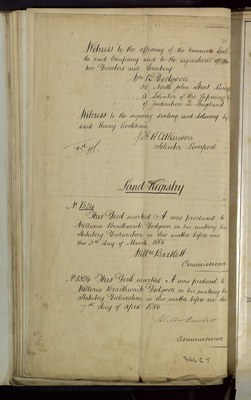 Witness to the affixing of the Common Seal
the said Company and to the signatures of
two Directors and Secretary
Wm B. Dodgson
North John Street
a Solicitor of the Supreme
of Judicature in England
Witness to the signing sealing and delivery by
said Henry
J. H. Atkinson
Solicitor Liverpool
Land Registry
No 1824
This Deed marked A was produced to
William Braithwaite Dodgson on his making his
Statutory Declaration in this matter before me
the 3rd day of March 1886
Willm Bartlett
Commissioner
No 1824 This Deed marked A was produced to
William Braithwaite Dodgson on his making his
Statutory Declaration in this matter before me the
day of April 1886
Willm Bartlett
Commissioner